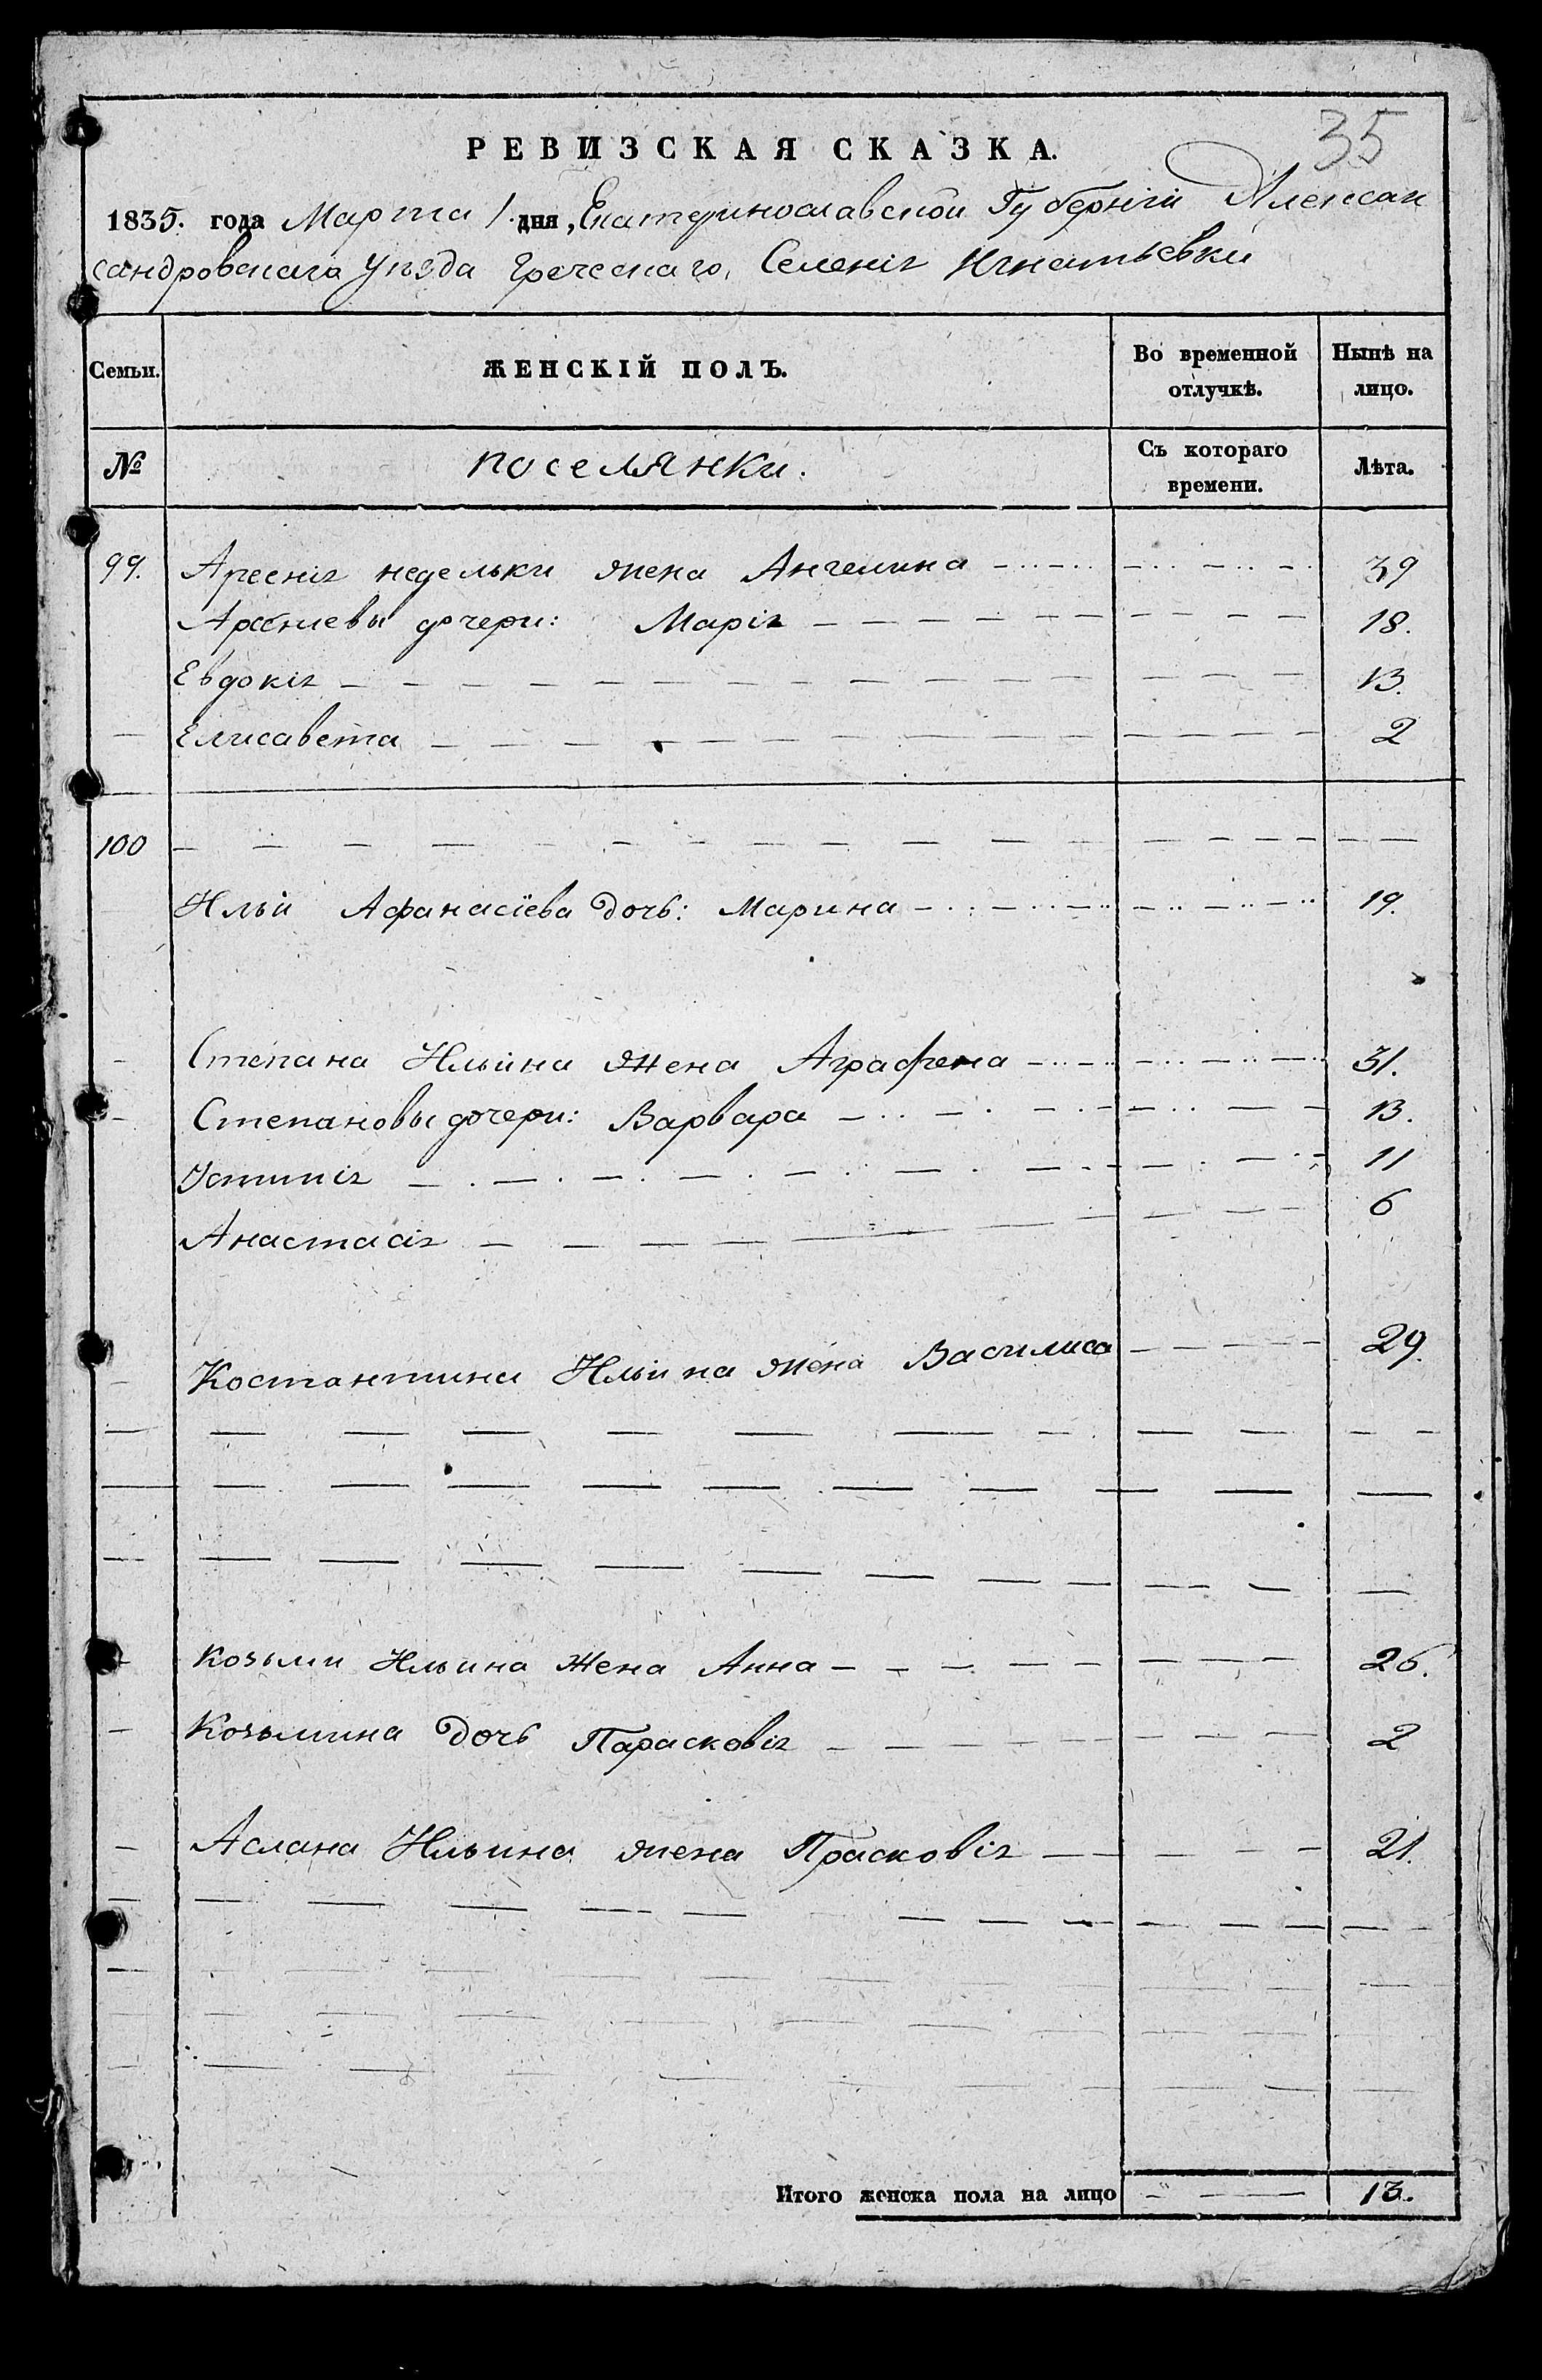 35
РЕВИЗСКАЯ СКАЗКА.
1835. года Марта 1. дня, Екатеринославской Губерніи Алексан
сандровскаго уѣзда Греческаго, Селенія Игнатьевки
Семьи. ЖЕНСКІЙ ПОЛЪ. Во временной отлучкѣ. Нынѣ на лицо.
№ поселянки. Съ котораго времени. Лѣта.
99. Арсенія недельки жена Ангелина 39
Арсениевы дочери: Марія 18.
Евдокія 13.
Елисавета 2
100
Ильи Афанасіева дочь: Марина 19.
Степана Ильина жена Аграфена 31.
Степановы дочери: Варвара 13.
Устинія 11
Анастасія 6
Костантина Ильина жена Василиса 29.
Козьми Ильина жена Анна 26.
Козьмина дочь Парасковія 2
Аслана Ильина жена Прасковія 21.
Итого женска пола на лицо 13.